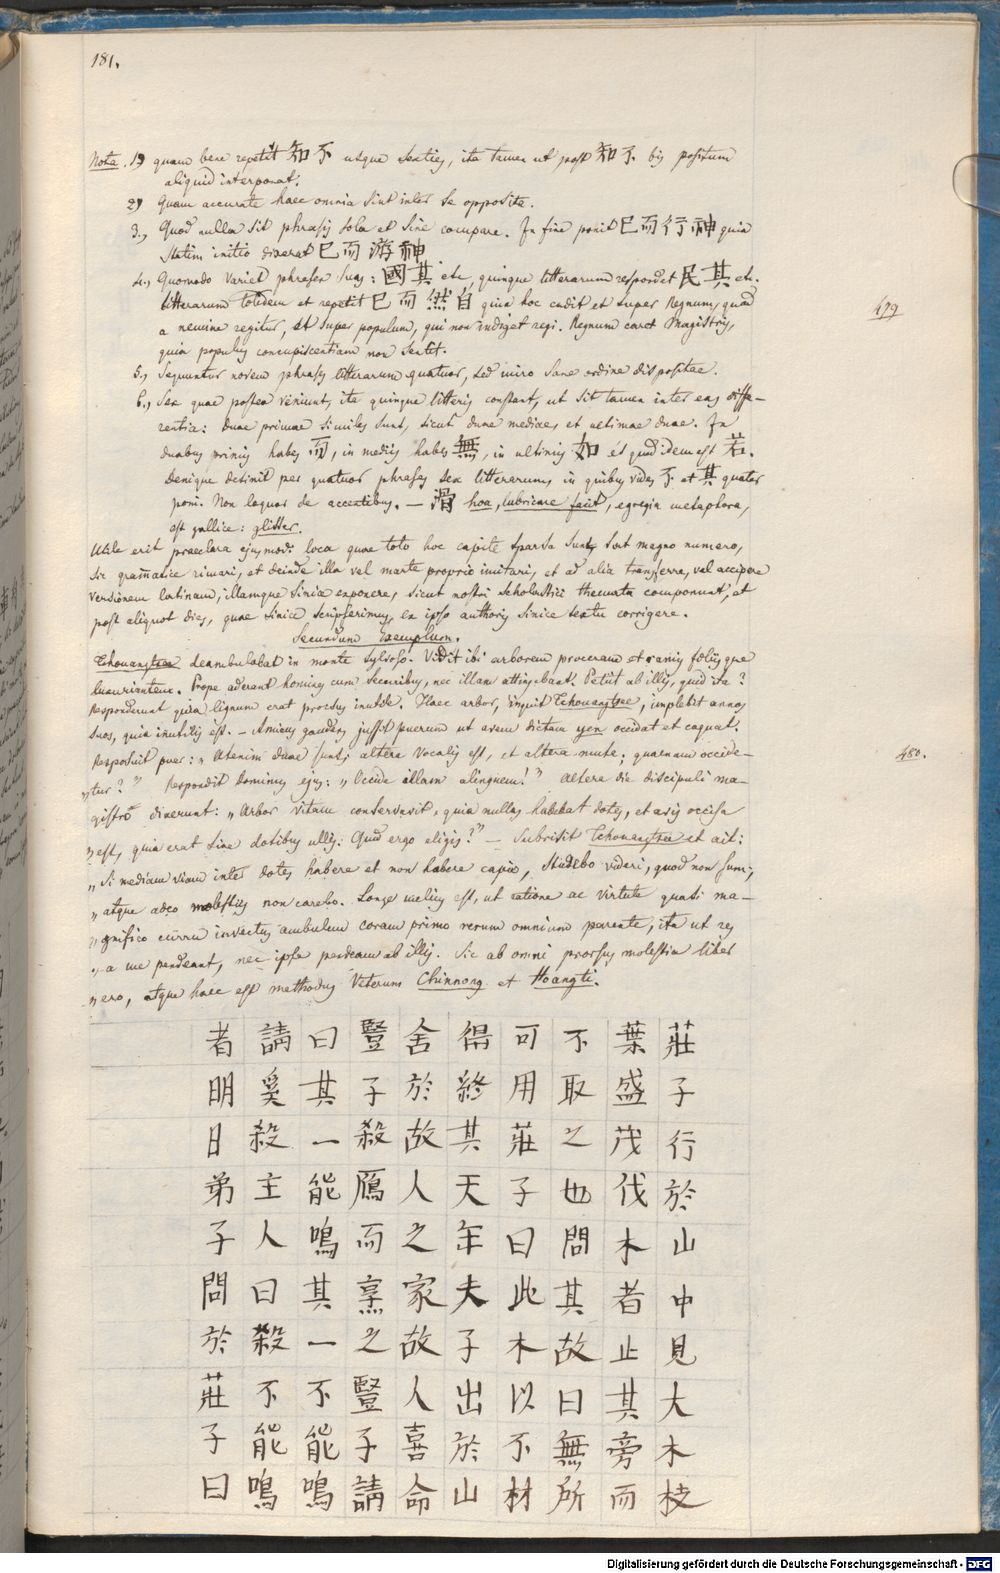 181.
Nota. 1) quam bene repetit 知 不 usque sexties, ita tamen ut post 知 不 bis positum
aliquid interponat.
2) Quam accurate haec omnia sint inter se opposita.
3., Quod nulla sit phrasis sola et sine compare. In fine ponit 已 而 行 神 quia
statim initio dixerat 已 而 游 神
4., Quomodo variet phrases suas: 國 其 etc, quinque litterarum respondet 民 其 etc.
litterarum totidem et repetit 已 而 然 自 quia hoc cadit et super Regnum, quod
a nemine regitur, et super populum, qui non indiget regi. Regnum caret Magistris,
quia populus concupiscentiam non sentit.
479
5., Sequuntur novem phrases litterarum quatuor, sed miro sane ordine dispositae.
6., Sex quae postea veniunt, ita quinque litteris constant, ut sit tamen inter eas diffe-
rentia: duae primae similes sunt, sicut duae mediae, et ultimae duae. In
duabus primis habes 而, in mediis habes 無, in ultimis 如 et quod idem est 若.
Denique desinit per quatuor phrases sex litterarum, in quibus vides 不 et 其 quater
poni. Non loquor de accentibus. — 滑 hoa, lubricare facit, egregia metaphora,
est gallice: glisser.
Utile erit praeclara ejusmodi loca quae toto hoc capite sparsa sunt, sat magno numero,
sic grammatice rimari, et deinde illa vel marte proprio imitari, et ad alia transferre, vel accipere
versionem latinam, illamque Sinice exponere, sicut nostri scholastici themata componunt, et
post aliquot dies, quae Sinice scripserimus, ex ipso authoris Sinice textu corrigere.
Secundum Exemplum.
Tchouangtsee deambulabat in monte sylvoso. Vidit ibi arborem proceram et ramis foliisque
luxuriantem. Prope aderant homines cum securibus, nec illam attingebant. Petiit ab illis, quid ita?
Responderunt quia lignum erat prorsus inutile. Haec arbor, inquit Tchouangtsee, implebit annos
suos, quia inutilis est. – Amicus gaudens jussit puerum ut avem dictam yen occidat et coquat.
Respondit puer: „ Atenim duae sunt; altera vocalis est, et altera muta; quamnam occide-
„tur?” Respondit Dominus ejus: „ Occide illam alinguem!” Altera die discipuli ma-
gistro dixerunt: „ Arbor vitam conservavit, quia nullas habebat dotes, et avis occisa
480.
„est, quia erat sine dotibus ullis: Quid ergo eligis?” — Subrisit Tchouangtsee et ait:
„ Si mediam viam inter dotes habere et non habere capio, studebo videri, quod non sum;
„ atque adeo molestiis non carebo. Longe melius est, ut ratione ac virtute quasi ma-
„gnifico curru invectus ambulem coram primo rerum omnium parente, ita ut res
„ a me pendeant, nec ipse pendeam ab illis. Sic ab omni prorsus molestia liber
„ ero, atque haec est methodus Veterum Chinnong et Hoangti.
莊子行於山中見大木枝
葉盛茂伐木者止其旁而
不取之也問其故曰無所
可用莊子曰此木以不材
得終其天年夫子出於山
舍於故人之家故人喜命
豎子殺鴈而烹之豎子請
曰其一能鳴其一不能鳴
請奚殺主人曰殺不能鳴
者明日弟子問於莊子曰
Digitalisierung gefördert durch die Deutsche Forschungsgemeinschaft - DFG